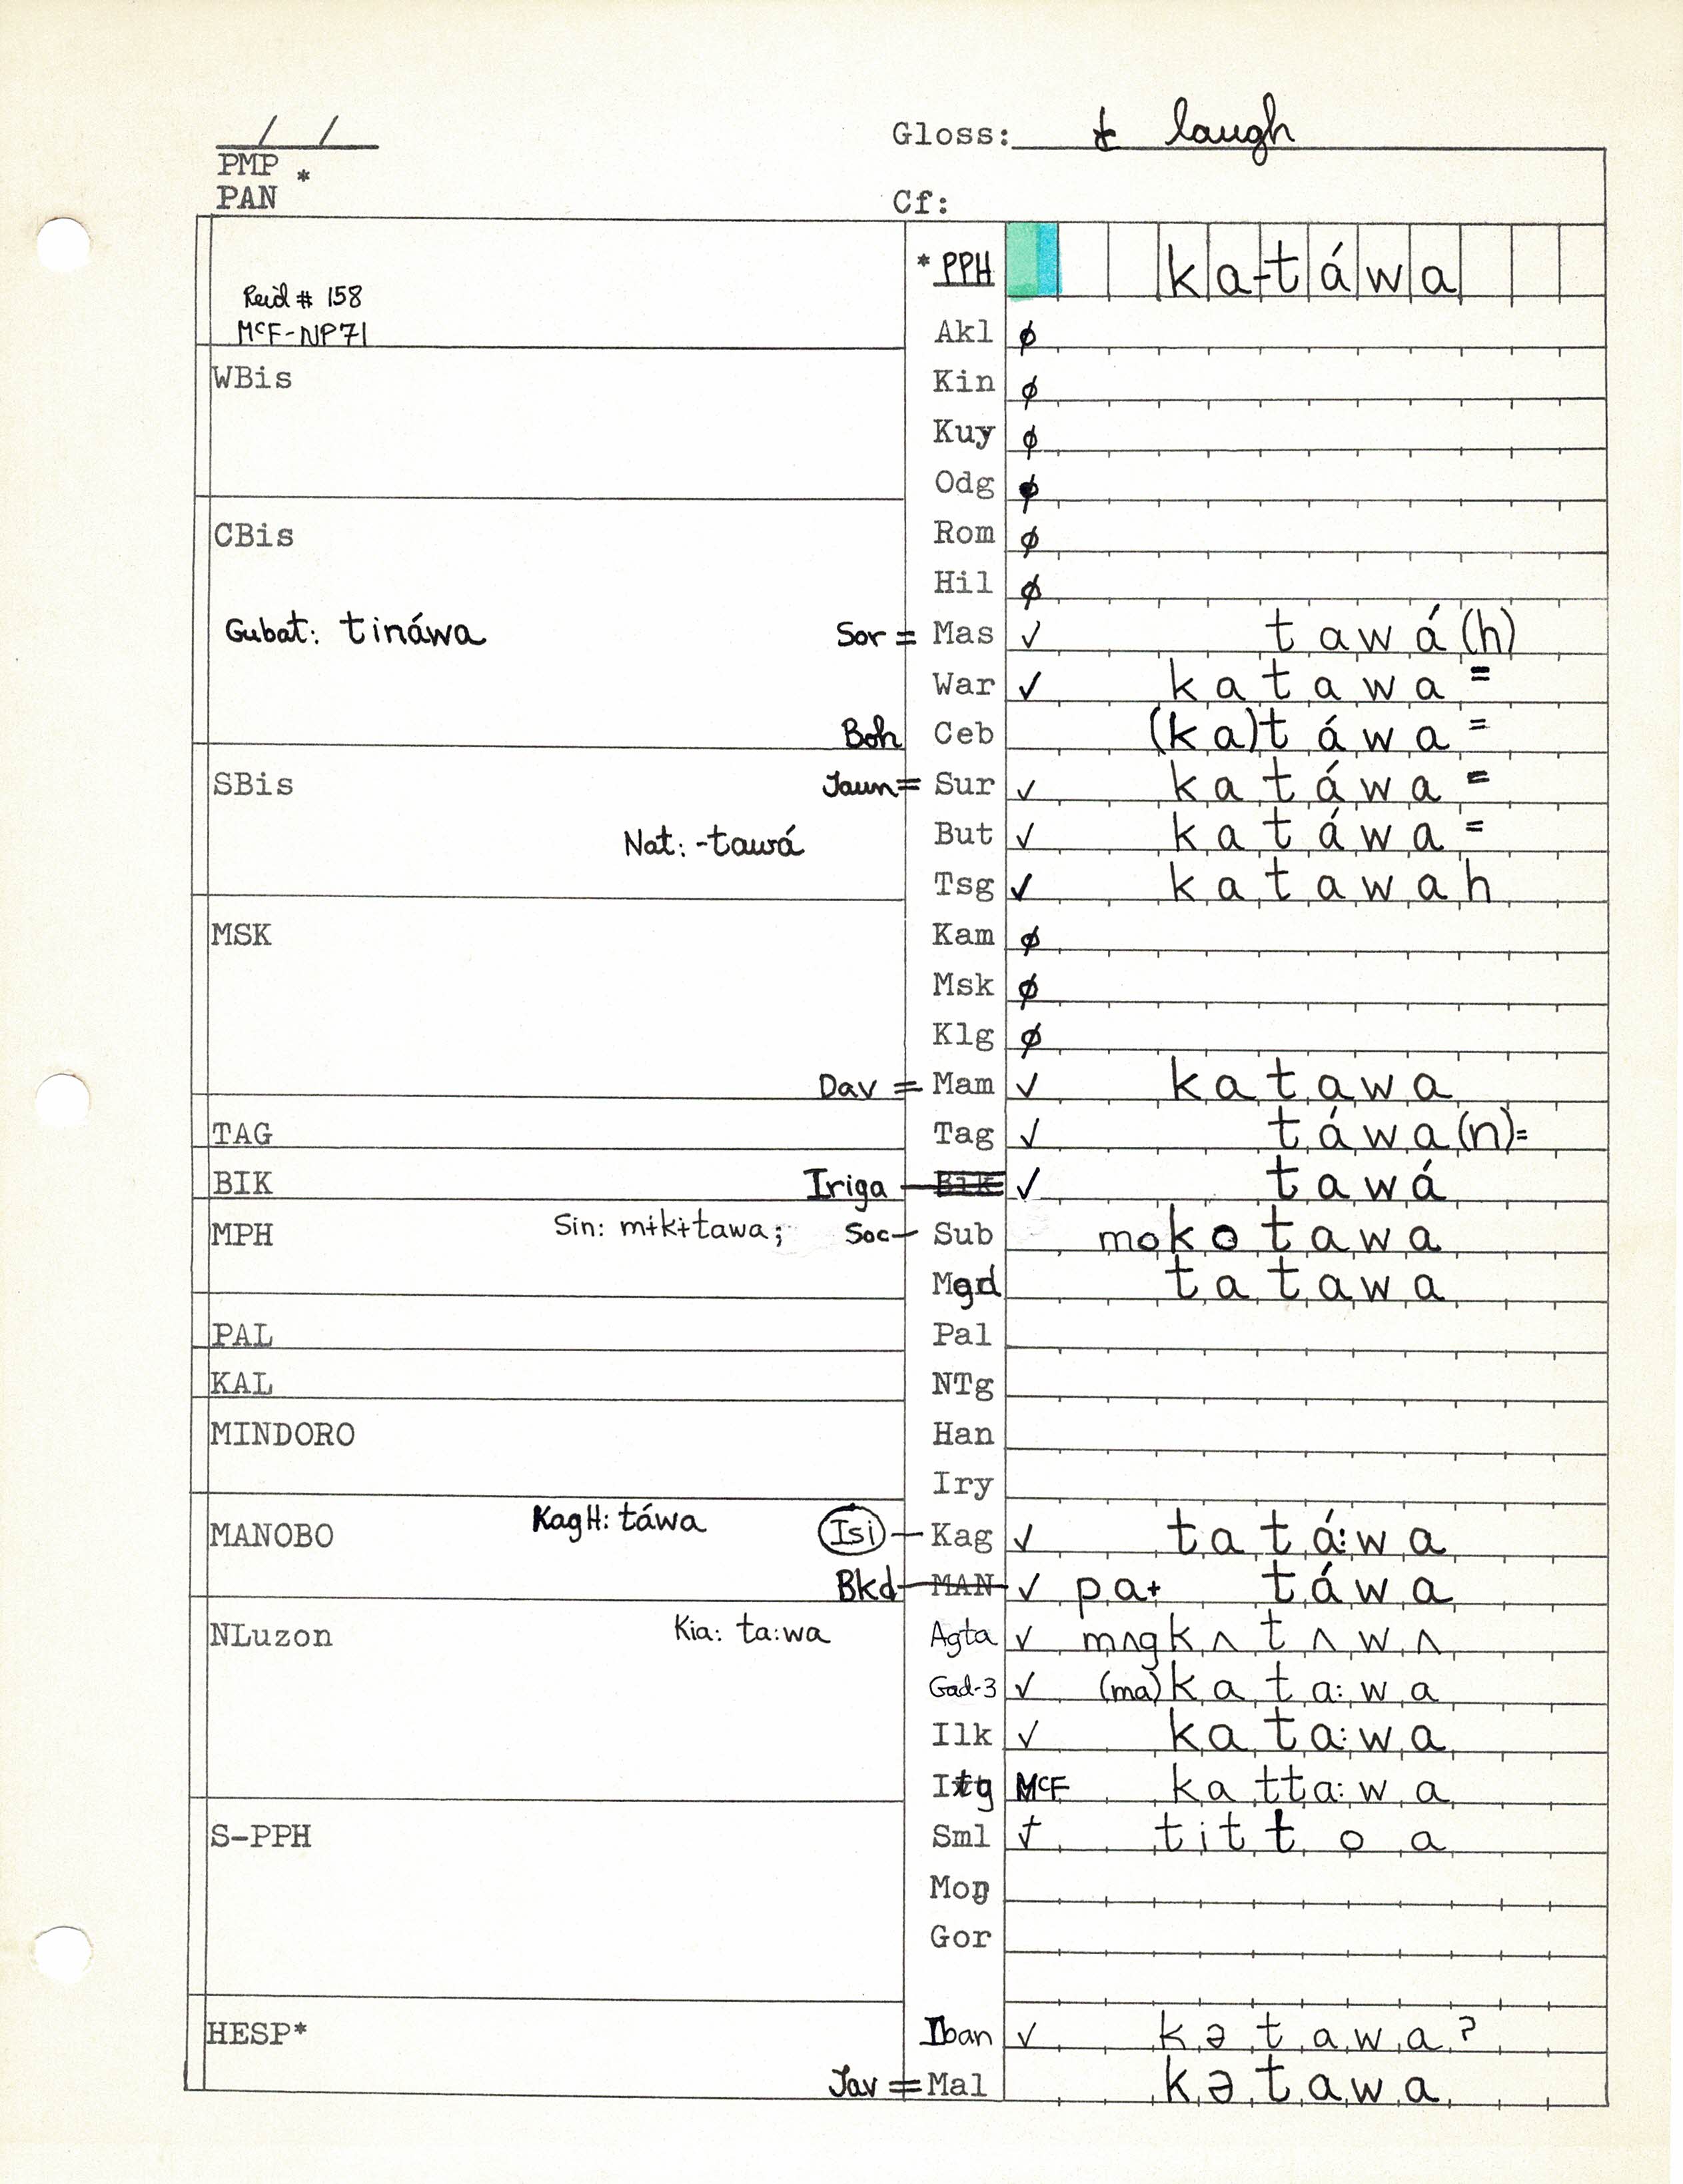 / /
PMP *
PAN
Gloss: t laugh
Cf:
Reid # 158
McF-NP71
* PPH ka-táwa
Akl ∅
WBis
Kin ∅
Kuy ∅
Odg ∅
CBis
Rom ∅
Hil ∅
Gubat: tináwa Sor = Mas ✓ tawá(h)
War ✓ katawa =
Boh Ceb (ka)táwa =
SBis Jaun = Sur ✓ katáwa =
Nat: -tawá But ✓ katáwa =
Tsg ✓ katawah
MSK Kam ∅
Msk ∅
Klg ∅
Dav = Mam ✓ katawa
TAG Tag ✓ táwa(n)=
BIK Iriga — Bik ✓ tawá
MPH Sin: mɨkɨtawa; Soc — Sub mokotawa
Mgd tatawa
PAL Pal
KAL NTg
MINDORO Han
Iry
MANOBO KagH: táwa Isi — Kag ✓ tatá:wa
Bkd — MAN ✓ pa+ táwa
NLuzon Kia: ta:wa Agta ✓ mʌgkʌtʌwʌ
Gad-3 ✓ (ma)kata:wa
Ilk ✓ kata:wa
Itg McF katta:wa
S-PPH Sml ✓ tittoa
Moŋ
Gor
HESP* Iban ✓ kətawaʔ
Jav = Mal kətawa